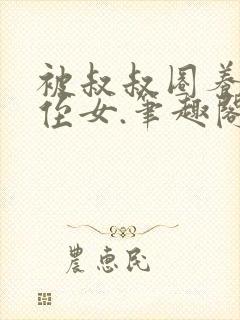 被叔叔圈养
侄女.笔趣阁
農惠民